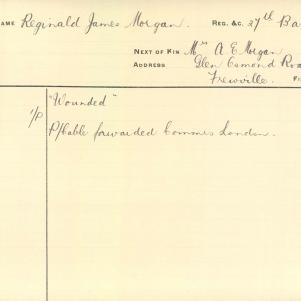 NAME Reginald James Morgan. REG. &C. 27th Ba
NEXT OF KIN Mrs A E Morgan
ADDRESS Glen Osmond Roa
Frewville. F
"Wounded"
1/P P/Cable forwarded Commrs London.